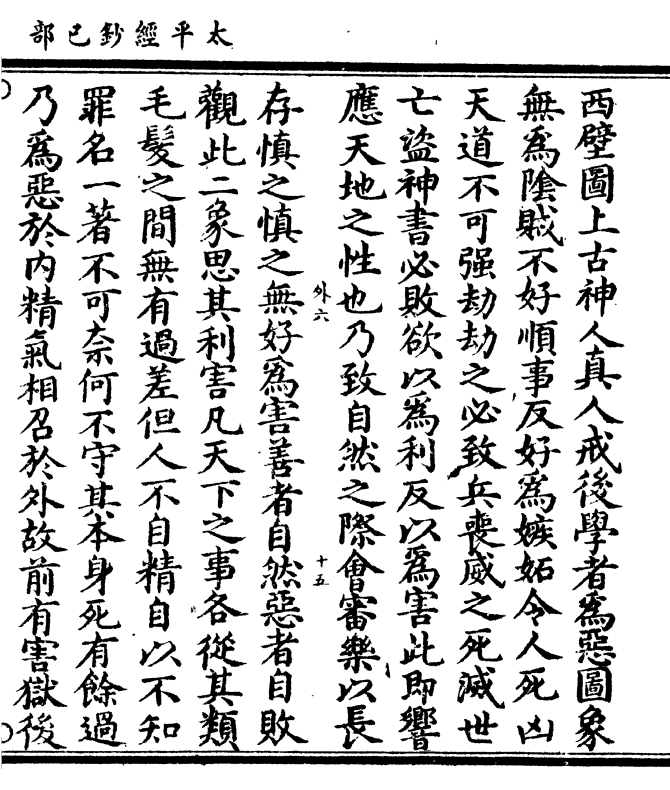 太平經鈔已部
西壁圖上古神人真人戒後學者為惡圖象
無為陰賊不好順事反好為嫉妬令人死凶
天道不可强劫劫之必致兵喪威之死滅世
亡盜神書必敗欲以為利反以為害此即響
應天地之性也乃致自然之際會審樂以長
外六
十五
存慎之慎之無好為害善者自然惡者自敗
觀此二象思其利害凡天下之事各從其類
毛髮之間無有過差但人不自精自以不知
罪名一著不可奈何不守其本身死有餘過
乃為惡於內精氣相召於外故前有害獄後